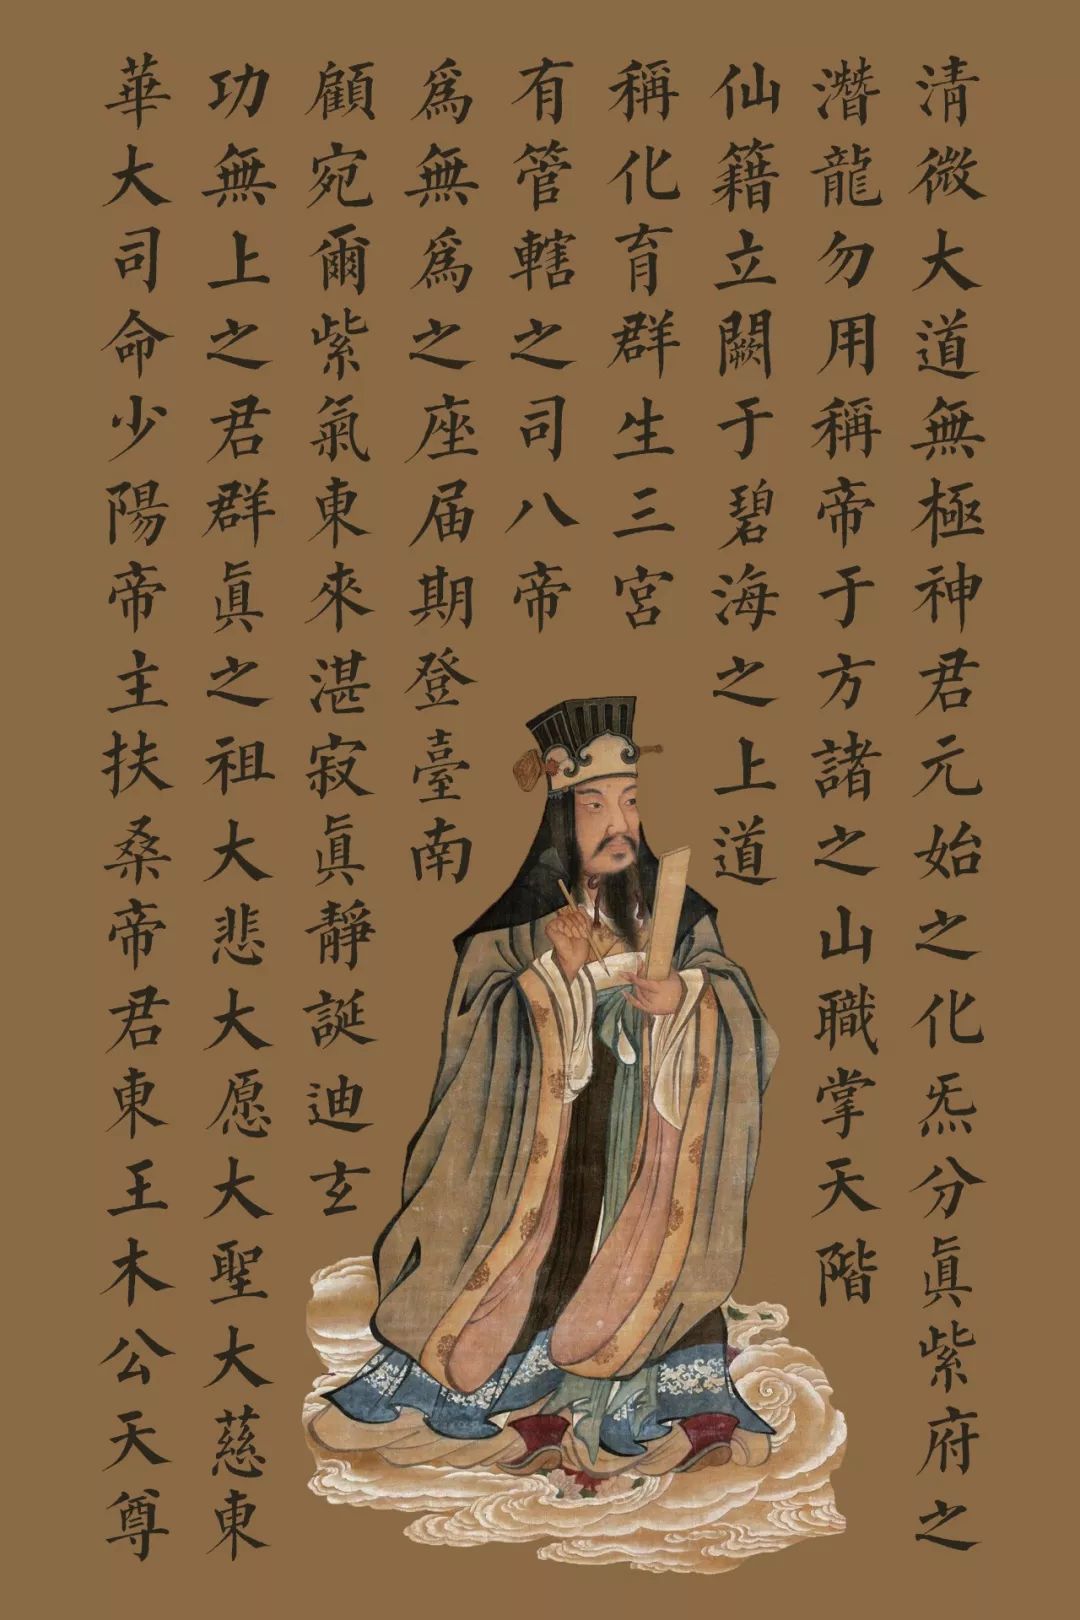 清微大道無極神君元始之化炁分眞紫府之
潛龍勿用稱帝于方諸之山職掌天階
仙籍立闕于碧海之上道
稱化育群生三宮
有管轄之司八帝
爲無爲之座届期登臺南
顧宛爾紫氣東來湛寂眞靜誕迪玄
功無上之君群眞之祖大悲大愿大聖大慈東
華大司命少陽帝主扶桑帝君東王木公天尊